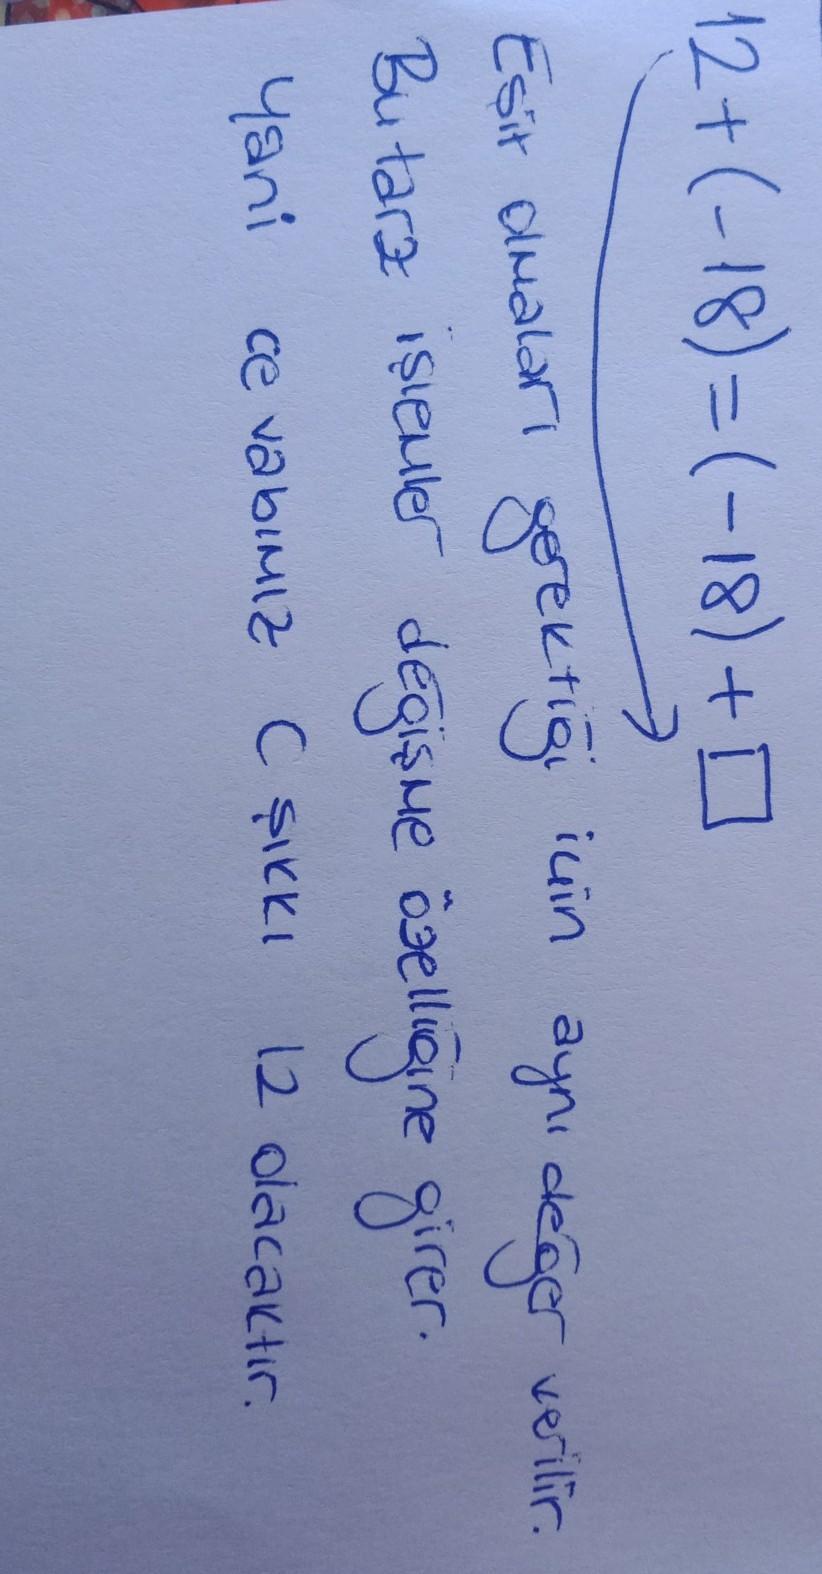 12 + (-18) = (-18) + □
Eşit olmaları gerektiği için aynı değer verilir.
Bu tarz işlemler değişme özelliğine girer.
Yani cevabımız C şıkkı 12 olacaktır.